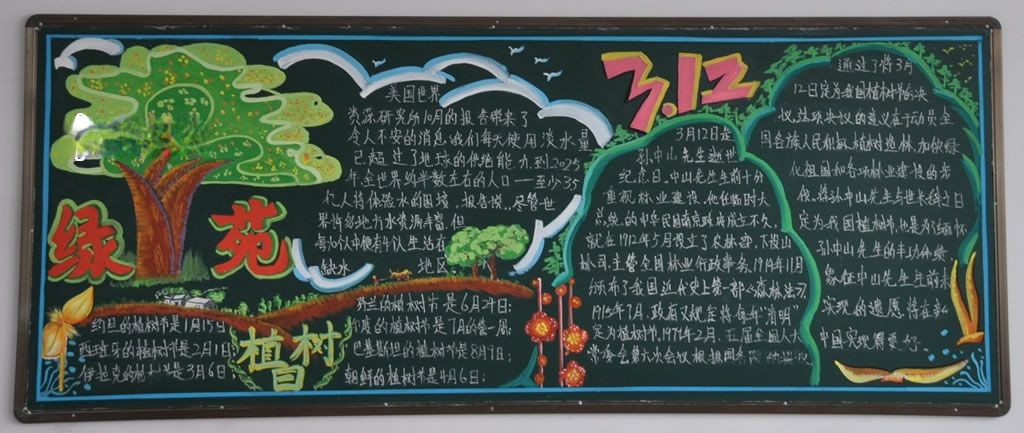 绿苑
美国世界
资源研究所10月的报告带来了
令人不安的消息:我们每天使用淡水量
已超过了地球的供给能力到2025
年,全世界约半数左右的人口——至少35
亿人将体淡水的困境,报告说,尽管世
界有些地方水资源丰富,但
每
以上生活在
缺水
地区
约旦的植树节是1月15日
西班牙的植树节是2月1日;
伊拉克的植树节是3月6日;
植树日
芬兰的植树节是6月24日;
印度的植树节是7月的第一周;
巴基斯坦的植树节是8月7日;
朝鲜的植树节是4月6日;
3.12
3月12日是
孙中山先生逝世
纪念日。中山先生生前十分
重视林业建设。他任临时大
总统的中华民国南京政府成立不久,
就在1912年5月设立了农林部,下设山
林司,主管全国林业行政事务,1914年11月
颁布了我国近代史上第一部《森林法》
1915年7月,政府又规定将每年"清明"
定为植树节,1979年2月,五届全国人大
常委会第六次会议根据国务院
通过了将3月
12日定为我国植树节的决
议,这项决议的意义在于动员全
国各族人民积极植树造林,加快绿
化祖国和各项林业建设的步
伐,将孙中山先生与世长辞之日
定为我国植树节,也是为了缅怀
孙中山先生的丰功伟绩
象征中山先生生前未
实现的遗愿,将在新
中国实现
更好